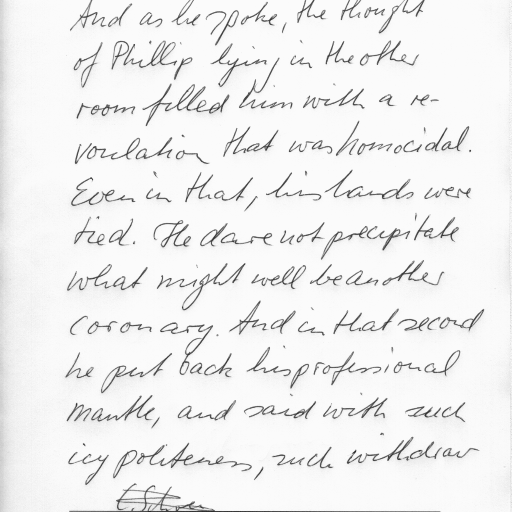 And as he spoke, the thought
of Phillip lying in the other
room filled him with a re-
voulation that was homocidal.
Even in that, his hands were
tied. He dare not precipitate
what might well be another
coronary. And in that second
he put back his professional
mantle, and said with such
icy politeness, such withdraw